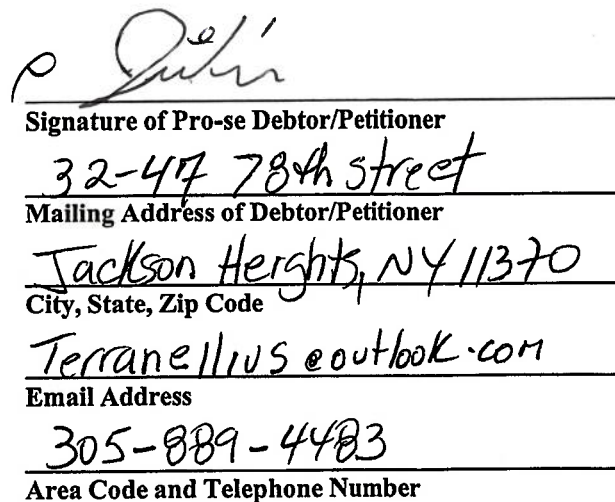 Signature of Pro-se Debtor/Petitioner
32-47 78th street
Mailing Address of Debtor/Petitioner
Jackson Herghts, NY 11370
City, State, Zip Code
Terranellius@outlook.com
Email Address
305-889-4483
Area Code and Telephone Number